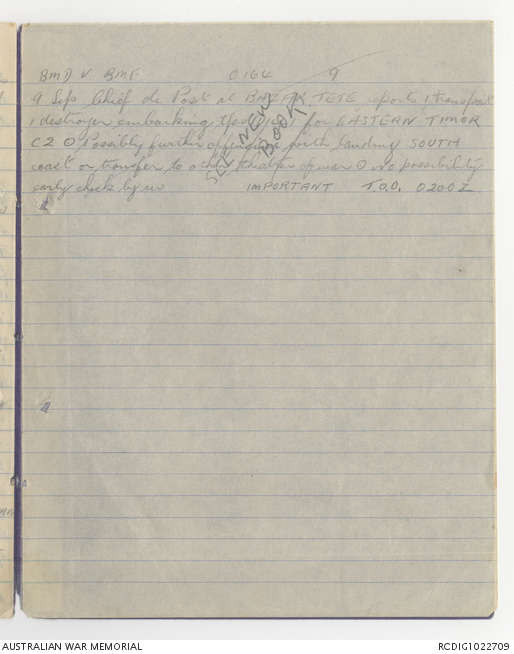 BMD V BMF 0164 9
9 Sep Chief de Post at BAZAR TETE reports 1 transport
1 destroyer embarking for EASTERN TIMOR
C2 ⊙ Possibly further offensive with landing SOUTH
coast or transfer to other theatre of war ⊙ no possibility
early check by us IMPORTANT T.O.O. 0200Z
SEE NEW
BOOK
AUSTRALIAN WAR MEMORIAL RCDIG1022709